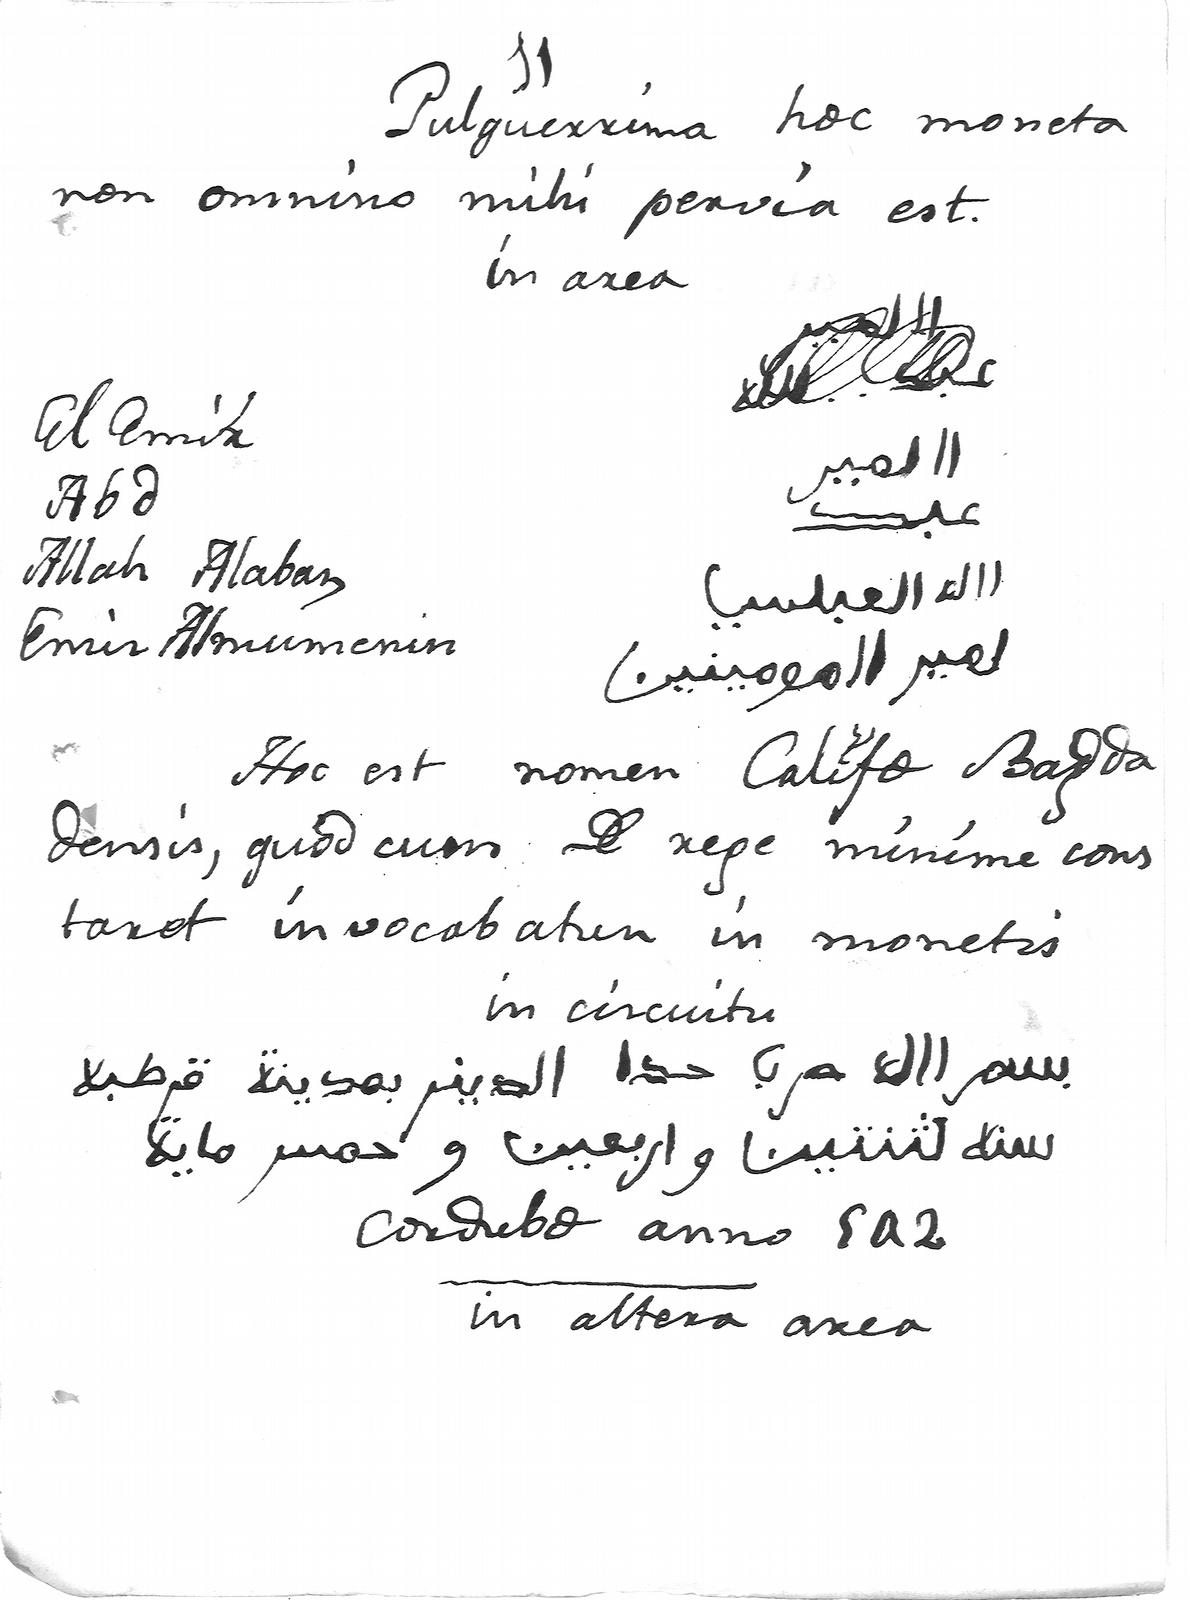 11
Pulguerrima hoc moneta
non omnino mihi pervia est.
in area
El Emir االمير
Abd عبد
Allah Alabas االله العباسي
Emir Almumenin امير المومينين
Hoc est nomen Califo Bagda
densis, quod cum rege minime cons
taret invocabatur in monetis
in circuitu
بسم االله ضرب هدا الدينر بمدينة قرطبة
سنة اثنتين و اربعين و خمس ماية
Cordubo anno 542
in altera area